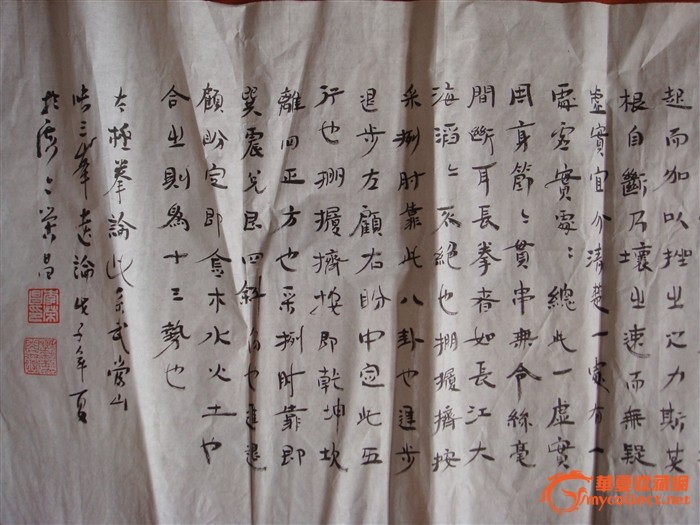 起而加以挫之之力斯其
根自斷乃壞之速而無疑
虛實宜分清楚一處有一
處虛實處〻總此一虛實
周身節〻貫串無令絲毫
間斷耳長拳者如長江大
海滔〻不絕也掤攦擠按
采挒肘靠此八卦也進步
退步左顧右盼中定此五
行也掤攦擠按即乾坤坎
離四正方也采挒肘靠即
巽震兌艮四斜角也進退
顧盼定即金木水火土也
合之則為十三勢也
太極拳論此系武當山
張三峯遺論戊子年夏
於 榮昌
華夏收藏網
mycollect.net